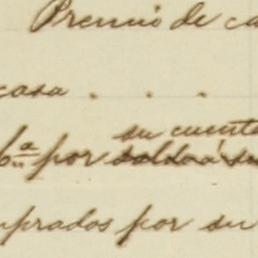 Premio de ca
casa . . .
su cuenta
6^a por saldo á su
mprados por su